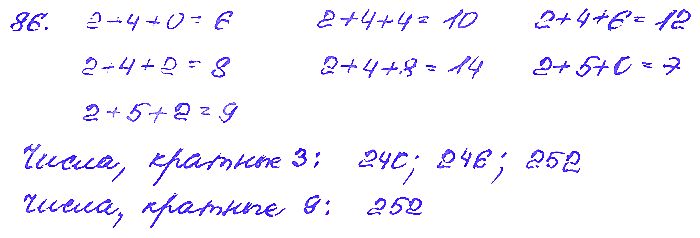 86. 2+4+0=6 2+4+4=10 2+4+6=12
2+4+2=8 2+4+8=14 2+5+0=7
2+5+2=9
Числа, кратные 3: 240; 246; 252
Числа, кратные 9: 252